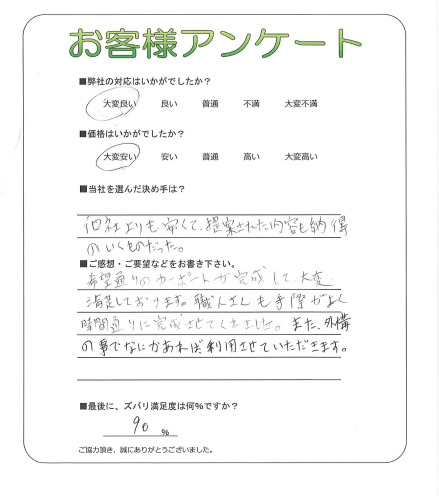 お客様アンケート
■弊社の対応はいかがでしたか?
大変良い 良い 普通 不満 大変不満
■価格はいかがでしたか?
大変安い 安い 普通 高い 大変高い
■当社を選んだ決め手は?
他社よりも安くて、提案された内容も納得
のいくものだった。
■ご感想・ご要望などをお書き下さい。
希望通りのカーポートが完成して、大変
満足しております。職人さんも手際がよく
時間通りに完成させてくれました。また、外構
の事でなにかあれば利用させていただきます。
■最後に、ズバリ満足度は何%ですか?
90 %
ご協力頂き、誠にありがとうございました。